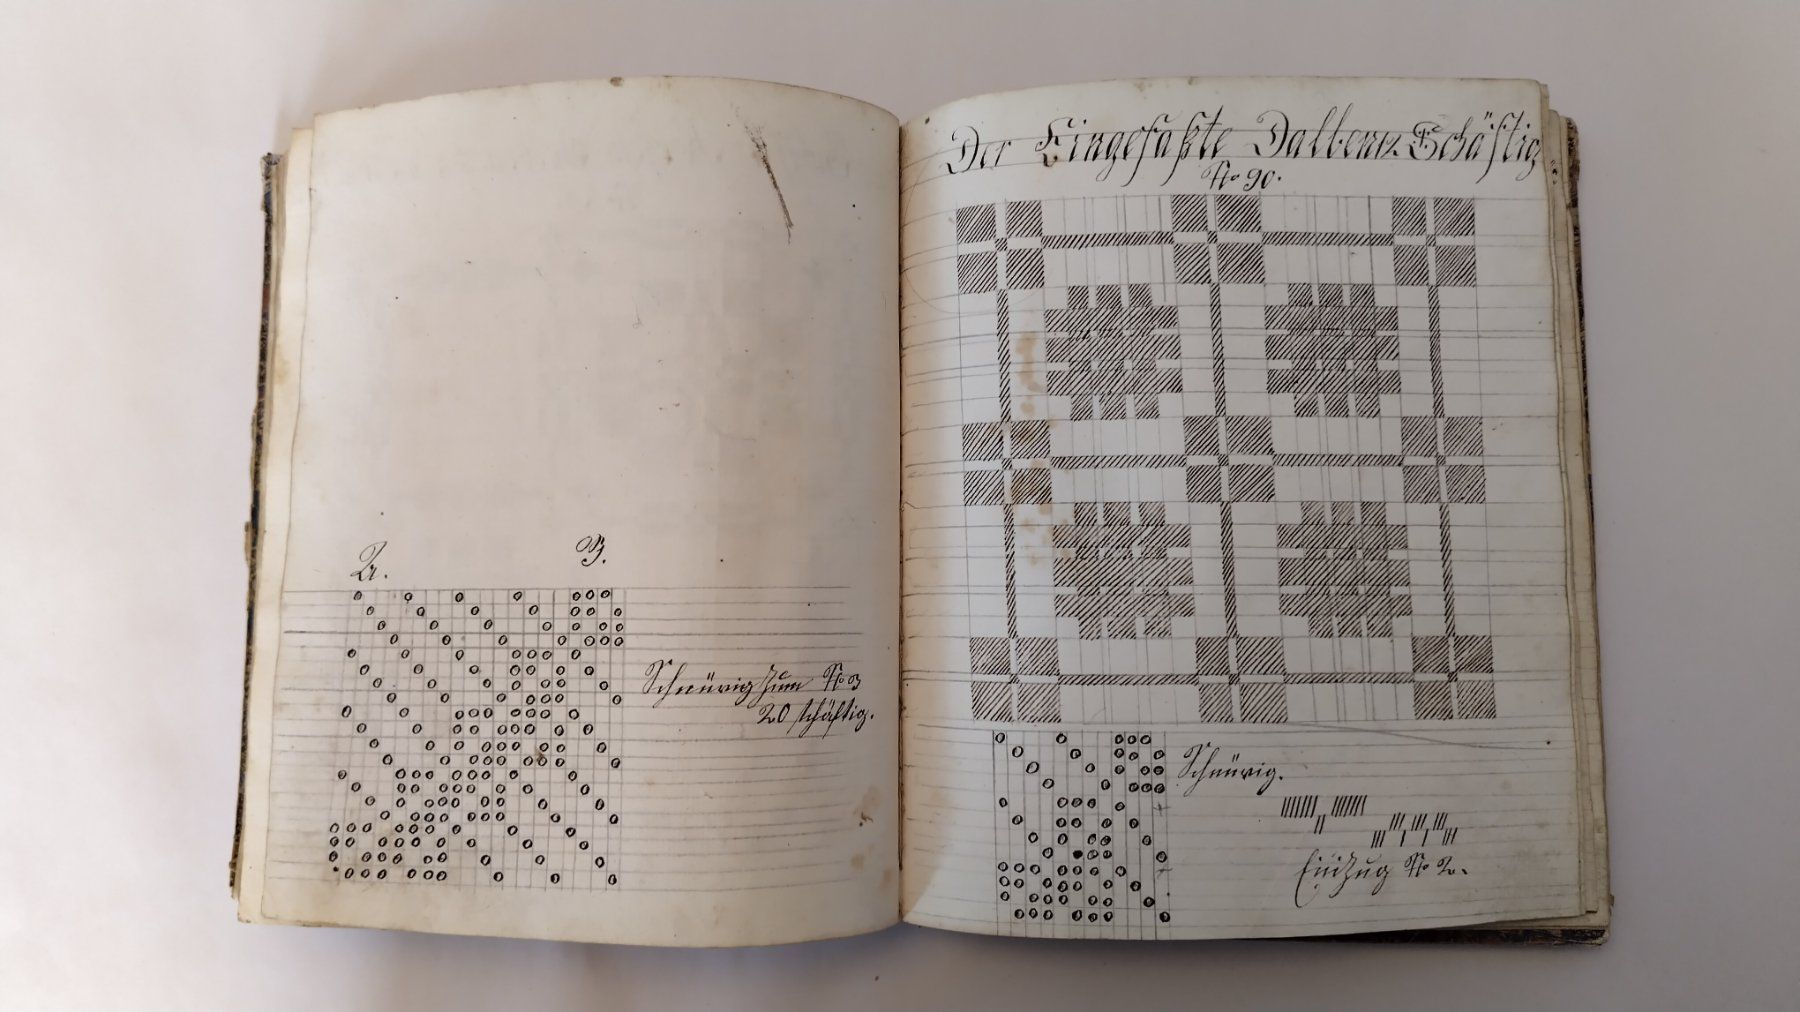 A. B.
Schnürig zum No 3
20 schäftig.
Der Eingefaßte Schäftig
No 90.
Schnürig.
Einzug No 2.